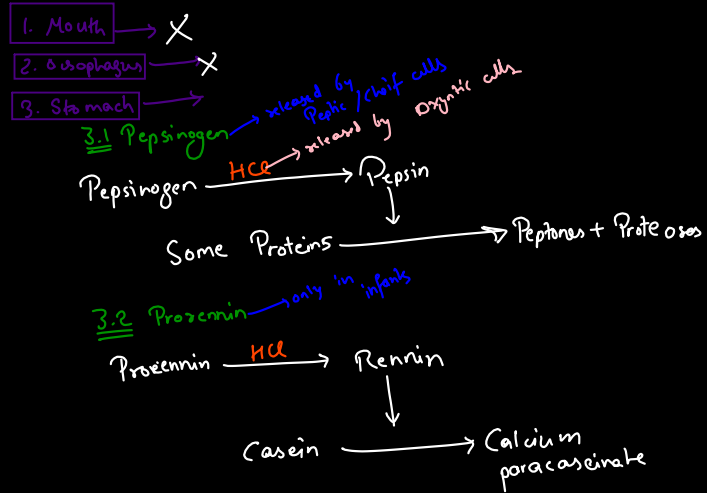 1. Mouth → X
2. Oesophagus → X
3. Stomach →
3.1 Pepsinogen → released by Peptic / Chief cells
Pepsinogen —HCl→ Pepsin
HCl → released by Oxyntic cells
↓
Some Proteins → Peptones + Proteoses
3.2 Prorennin → only in infants
Prorennin —HCl→ Rennin
↓
Casein → Calcium
paracaseinate